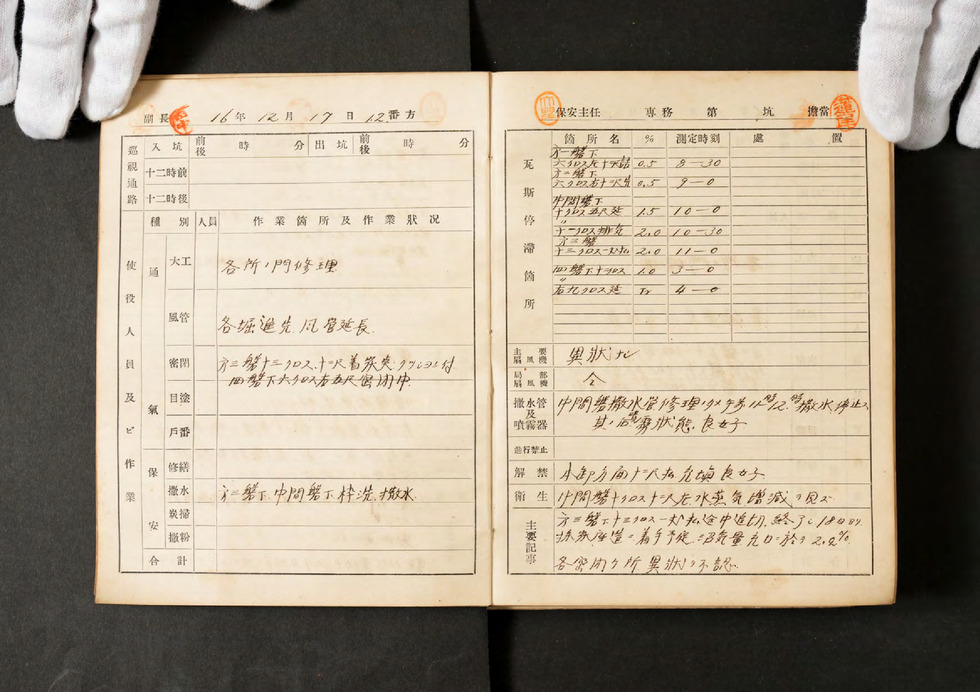 副長 16年 12月 17日 12番方
巡視通路 入坑 前後 時 分 出坑 前後 時 分
十二時前
十二時後
種別 人員 作業箇所及作業狀況
使役人員及ビ作業
通氣
大工 各所ノ門修理
風管 各堀進先 風管延長
密閉 方三盤十三クロス、十二尺着炭突
四盤下六クロス右五尺密閉中
目塗
戶番
保安
修繕
撒水 方二盤下、中間盤下枠洗、撒水
炭掃
撒粉
合計
保安主任 專務 第 坑 擔當
瓦斯停滯箇所
箇所名 % 測定時刻 處置
方一盤下
0.5 8-30
方二盤下
六クロス右十二尺先 0.5 9-0
中間盤下
十クロス五尺延 1.5 10-0
〃
十一クロス排気 2.0 10-30
方三盤
十三クロス 2.0 11-0
四盤下十クロス 1.0 3-0
〃
右九クロス延 Tr 4-0
主要扇風機 異狀ナシ
局部扇風機 仝
撒水管及噴霧器 中間盤撒水管修理ノタメ午前11時~12時撒水停止ス
其ノ后噴霧狀態、良好
進行禁止
解禁 本卸方面十二尺払充塡良好
衛生 中間盤十クロス十二尺左、水蒸気増減ヲ見ズ
主要記事 方三盤下十三クロス 払途中迄切、終了し18日ヨリ
着手予定 2.2%
各密閉ヶ所異狀ヲ不認